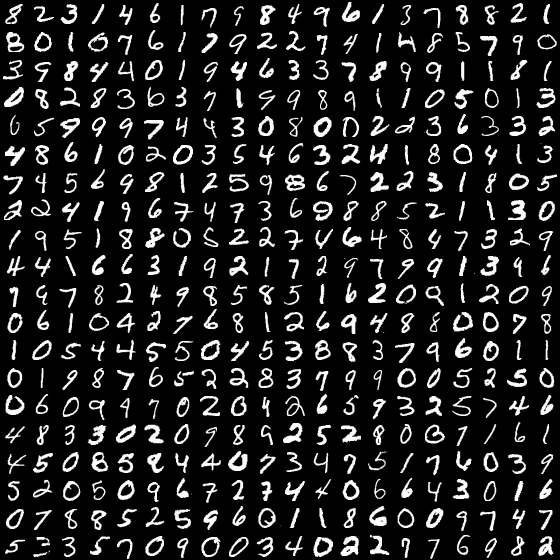 8 2 3 1 4 6 1 7 9 8 4 9 6 1 3 7 8 8 2 1
8 0 1 0 7 6 1 7 9 2 2 7 4 1 4 8 5 7 9 0
3 9 8 4 4 0 1 9 4 6 3 3 7 8 9 9 1 1 8 1
0 8 2 8 3 6 3 7 1 9 9 8 9 1 1 0 5 0 1 3
0 5 9 9 9 7 4 4 3 0 8 0 0 2 2 3 6 3 3 2
4 8 6 1 0 2 0 3 5 4 6 3 2 4 1 8 0 4 1 3
7 4 5 6 9 8 1 2 5 9 8 6 7 2 2 3 1 8 0 5
2 2 4 1 9 6 7 4 7 3 6 9 8 8 5 2 1 1 3 0
1 9 5 1 8 8 0 5 2 2 7 4 6 4 8 4 7 3 2 9
4 4 1 6 6 3 1 9 2 1 7 2 9 7 9 9 1 3 9 6
9 9 7 8 2 4 9 8 5 8 5 1 6 2 0 9 1 2 0 9
0 6 1 0 4 2 7 6 8 1 2 6 9 4 8 8 0 0 7 8
1 0 5 4 4 5 5 0 4 5 3 8 8 3 7 9 6 0 1 1
0 1 9 8 7 6 5 2 2 8 3 7 9 9 0 0 5 2 5 0
0 6 0 9 4 7 0 2 0 4 2 6 5 9 3 2 5 7 4 6
4 8 3 3 0 2 0 9 8 9 2 5 2 8 0 0 7 1 6 1
4 5 0 8 5 8 4 4 0 7 3 4 7 5 1 7 6 0 3 9
5 2 0 5 0 9 6 7 2 7 4 4 0 6 6 4 3 0 1 6
0 7 8 8 5 2 5 9 6 0 1 1 8 6 0 0 9 7 4 7
5 3 3 5 7 0 9 0 0 3 4 0 2 2 7 7 6 9 8 2